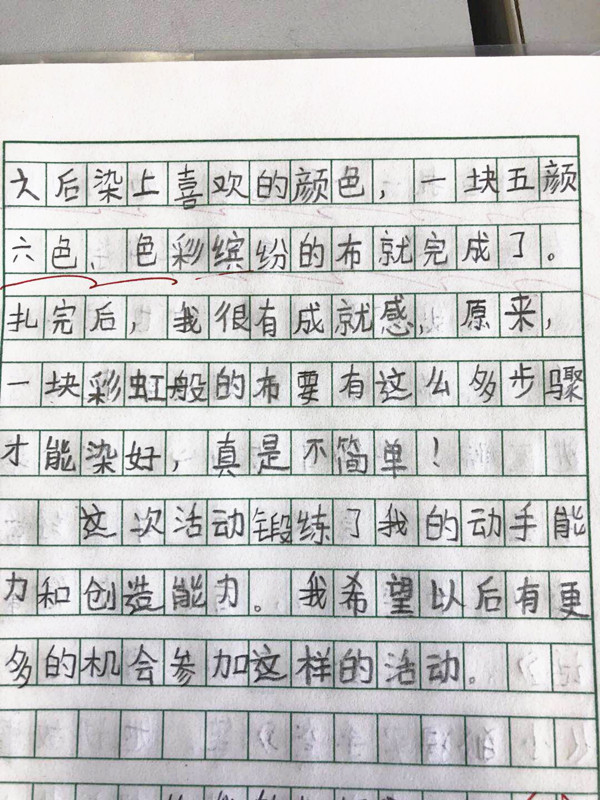 后染上喜欢的颜色，一块五颜
六色、色彩缤纷的布就完成了。
扎完后，我很有成就感，原来，
一块彩虹般的布要有这么多步骤
才能染好，真是不简单！
这次活动锻练了我的动手能
力和创造能力。我希望以后有更
多的机会参加这样的活动。